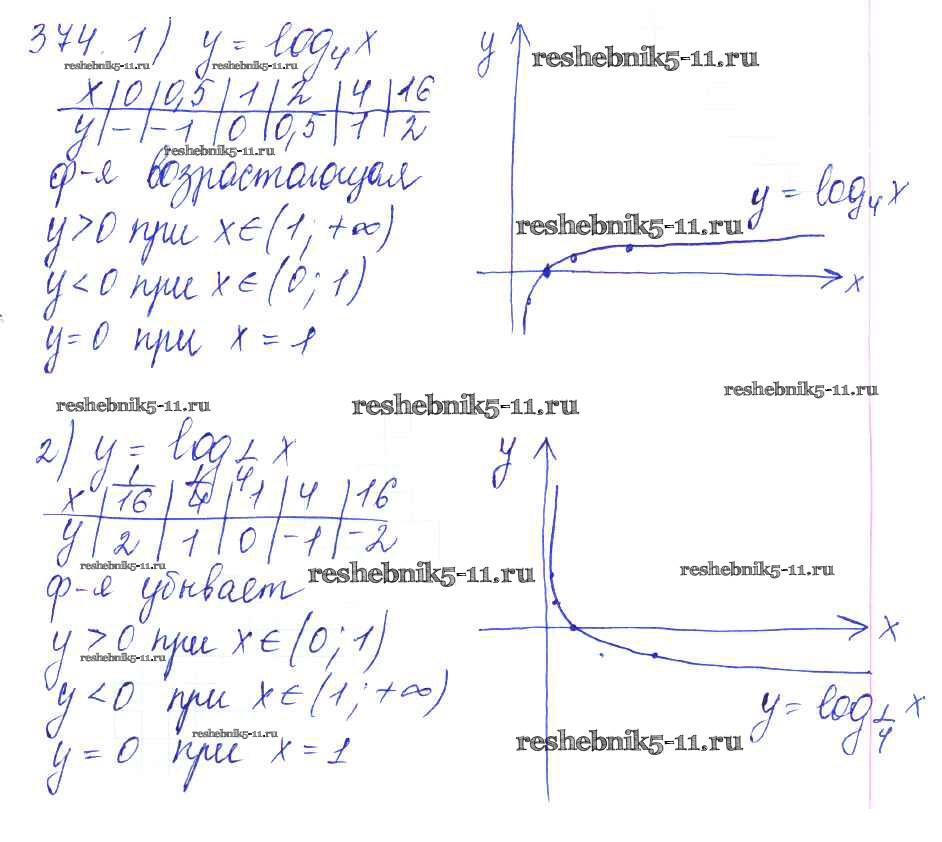 374. 1) y = log₄x
reshebnik5-11.ru reshebnik5-11.ru
x | 0 | 0,5 | 1 | 2 | 4 | 16
y | – | –1 | 0 | 0,5 | 1 | 2
reshebnik5-11.ru
ф-я возрастающая
y > 0 при x ∈ (1; +∞)
y < 0 при x ∈ (0; 1)
y = 0 при x = 1
y
reshebnik5-11.ru
y = log₄x
reshebnik5-11.ru
x
reshebnik5-11.ru
reshebnik5-11.ru
reshebnik5-11.ru
2) y = log_{1/4} x
x | 1/16 | 1/4 | 1 | 4 | 16
y | 2 | 1 | 0 | –1 | –2
reshebnik5-11.ru
ф-я убывает
reshebnik5-11.ru
y > 0 при x ∈ (0; 1)
reshebnik5-11.ru
y < 0 при x ∈ (1; +∞)
reshebnik5-11.ru
y = 0 при x = 1
y
reshebnik5-11.ru
x
y = log_{1/4} x
reshebnik5-11.ru